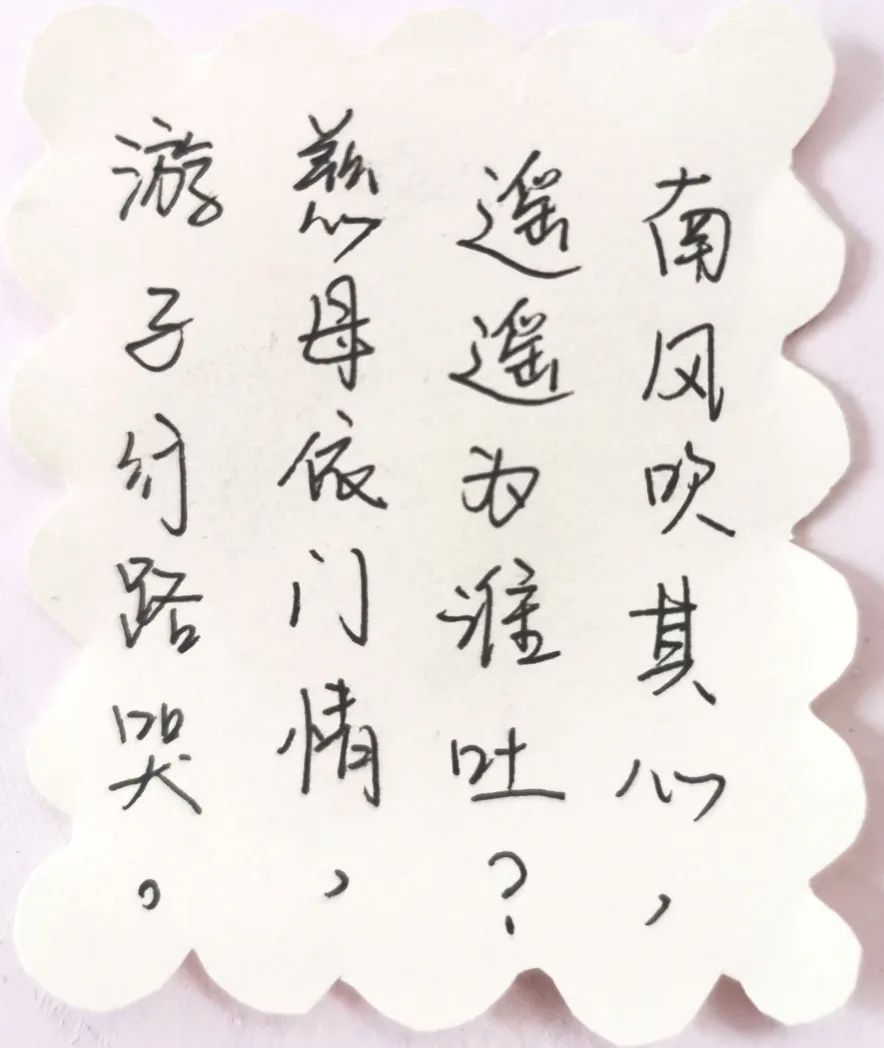 南风吹其心，
遥遥为谁吐？
慈母依门情，
游子行路哭。